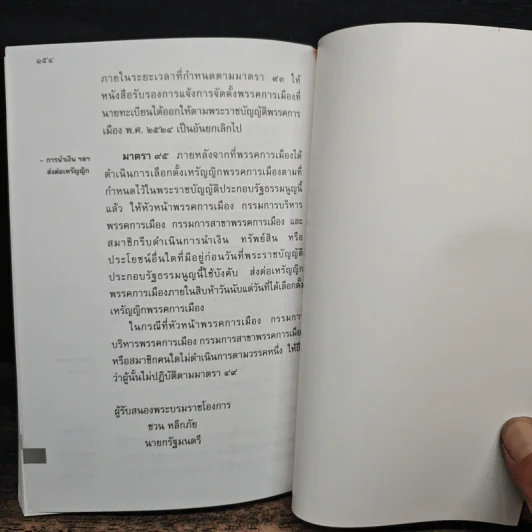 ๑๕๔
ภายในระยะเวลาที่กำหนดตามมาตรา ๙๓ ให้
หนังสือรับรองการแจ้งการจัดตั้งพรรคการเมืองที่
นายทะเบียนได้ออกให้ตามพระราชบัญญัติพรรคการ
เมือง พ.ศ. ๒๕๒๔ เป็นอันยกเลิกไป
- การนำเงิน ฯลฯ
ส่งต่อเหรัญญิก
มาตรา ๙๕ ภายหลังจากที่พรรคการเมืองได้
ดำเนินการเลือกตั้งเหรัญญิกพรรคการเมืองตามที่
กำหนดไว้ในพระราชบัญญัติประกอบรัฐธรรมนูญนี้
แล้ว ให้หัวหน้าพรรคการเมือง กรรมการบริหาร
พรรคการเมือง กรรมการสาขาพรรคการเมือง และ
สมาชิกรีบดำเนินการนำเงิน ทรัพย์สิน หรือ
ประโยชน์อื่นใดที่มีอยู่ก่อนวันที่พระราชบัญญัติ
ประกอบรัฐธรรมนูญนี้ใช้บังคับ ส่งต่อเหรัญญิก
พรรคการเมืองภายในสิบห้าวันนับแต่วันที่ได้เลือกตั้ง
เหรัญญิกพรรคการเมือง
ในกรณีที่หัวหน้าพรรคการเมือง กรรมการ
บริหารพรรคการเมือง กรรมการสาขาพรรคการเมือง
หรือสมาชิกคนใดไม่ดำเนินการตามวรรคหนึ่ง ให้ถือ
ว่าผู้นั้นไม่ปฏิบัติตามมาตรา ๔๙
ผู้รับสนองพระบรมราชโองการ
ชวน หลีกภัย
นายกรัฐมนตรี